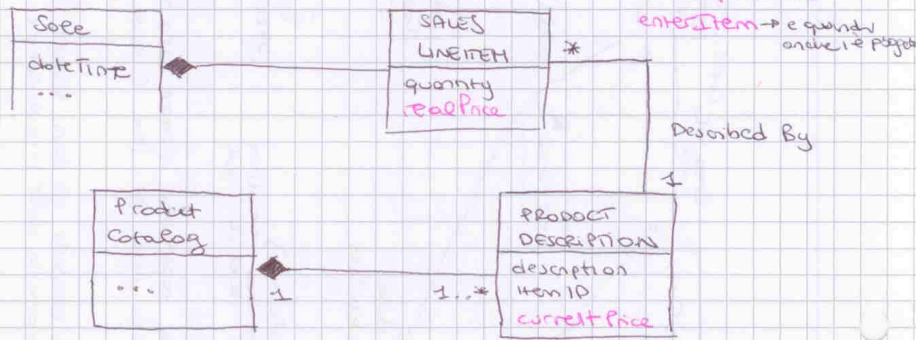 Sale
dateTime
...
SALES
LINEITEM
quantity
realPrice
*
enterItem → e quindi
anche i è
Described By
1
Product
Catalog
...
1
1..*
PRODUCT
DESCRIPTION
description
ItemID
currentPrice